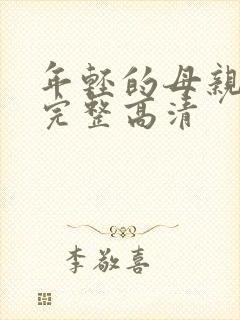 年轻的母親
完整高清
李敬喜